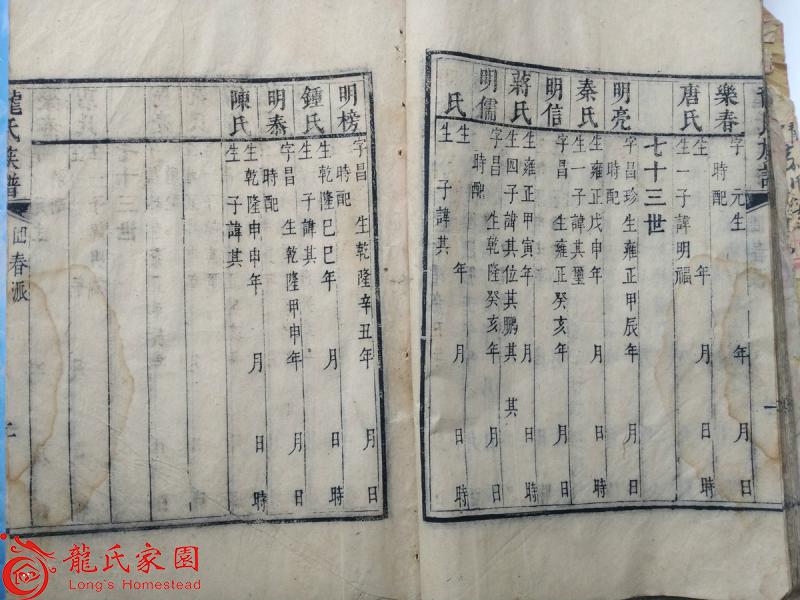 樂春 字 元生 年 月 日
時配
唐氏 生 年 月 日
生一子諱明福
七十三世
明亮 字昌珍生雍正甲辰年 月 日
時配
秦氏 生雍正戊申年 月 日
生一子諱其璽
明信 字昌 生雍正癸亥年 月 日
時配
蔣氏 生雍正甲寅年 月 日
生四子諱其位其鵬其 其
明儒 字昌 生乾隆癸亥年 月 日
時配
氏 生 年 月 日 時
生 子諱其
明榜 字昌 生乾隆辛丑年 月 日
時配
鍾氏 生乾隆巳巳年 月 日 時
生 子諱其
明泰 字昌 生乾隆甲申年 月 日
時配
陳氏 生乾隆申申年 月 日 時
生 子諱其
龍氏族譜 春派 二
龍氏家園
Long's Homestead